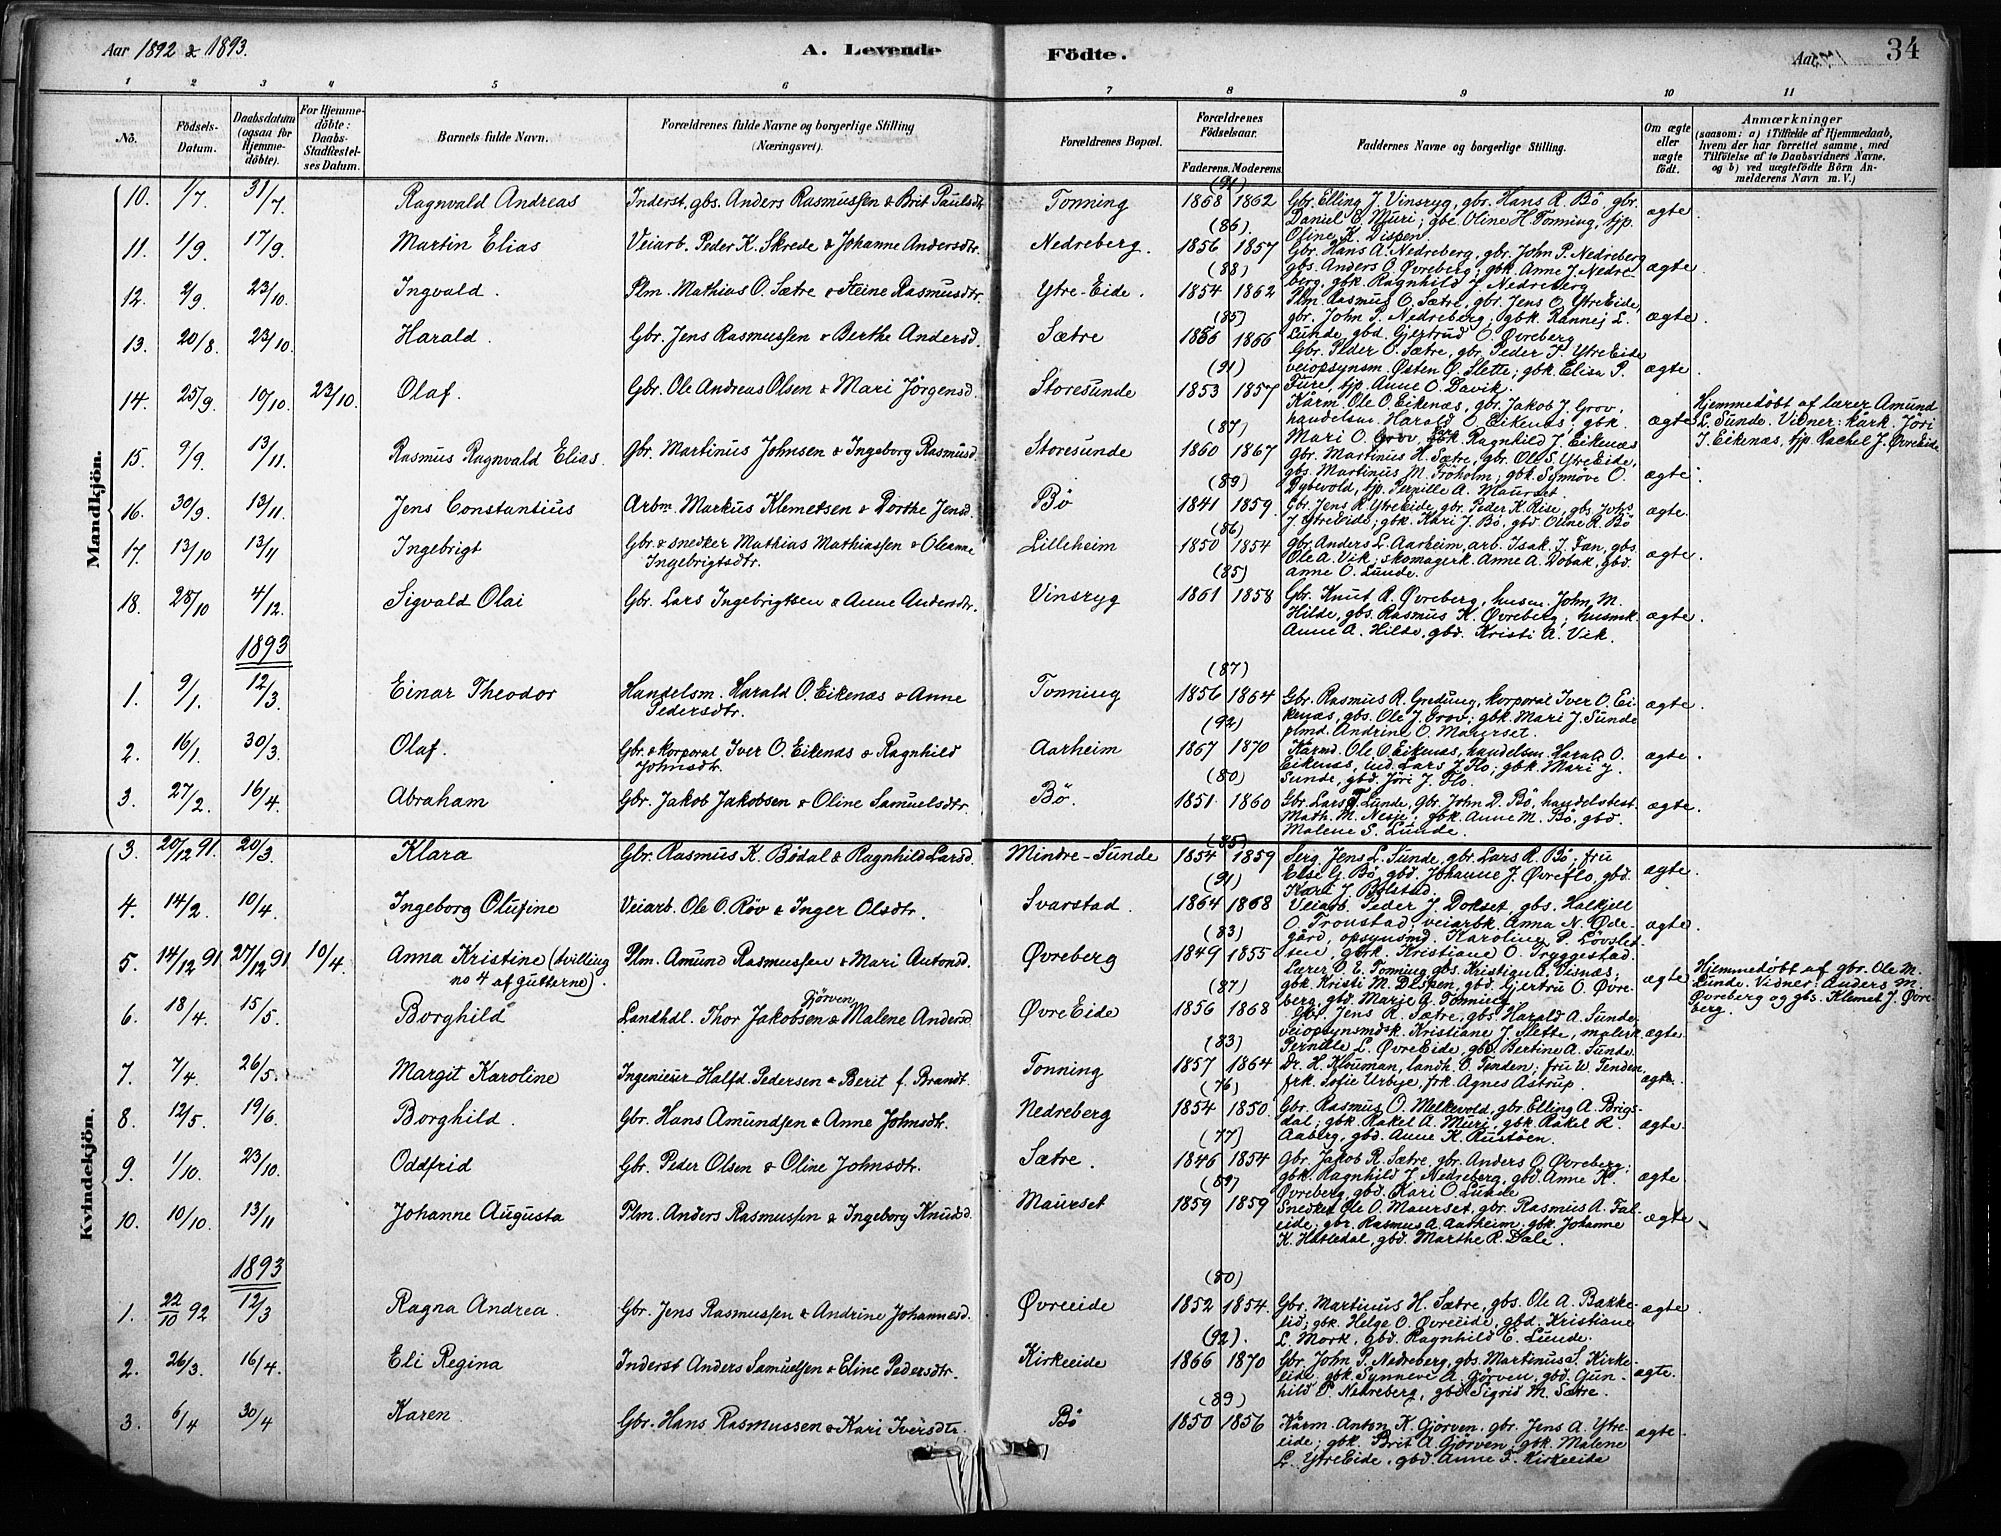 Aar 1892 & 1893.
A. Levende Födte.
Aar
34
1 2 3 4 5 6 7 8 9 10 11
No.
Födsels-Datum.
Daabsdatum (ogsaa for Hjemme-döbte).
For Hjemme-döbte: Daabs-Stadfæstelses Datum.
Barnets fulde Navn.
Forældrenes fulde Navne og borgerlige Stilling (Næringsvei).
Forældrenes Bopæl.
Forældrenes Födselsaar.
Faderens. Moderens.
Faddernes Navne og borgerlige Stilling.
Om ægte eller uægte födt.
Anmærkninger
(saasom: a) i Tilfælde af Hjemmedaab, hvem der har forrettet samme, med Tilföielse af to Daabsvidners Navne, og b) ved uægtefödte Börn Anmelderens Navn m. V.)
Mandkjön.
10. 1/7 31/7. Ragnvald Andreas Inderst, gbs. Anders Rasmussen & Brit Paulsdtr. Tonning (91) 1868 1862 Gbr. Elling J. Vinsryg, gbr. Hans R. Bö gbr.
Daniel E. Muri; gbk. Oline H. Tonning, tjp.
Oline K. Dispen ægte.
11. 1/9 17/9. Martin Elias Veiarb. Peder K. Skrede & Johanne Andersdtr. Nedreberg. (86) 1856 1857 Gbr. Hans A. Nedreberg, gbr. John P. Nedreberg
gbs. Anders O. Øvreberg; gbk. Anne J. Nedre-
berg, gbk. Ragnhild J. Nedreberg ægte.
12. 2/9 23/10. Ingvald. Plm. Mathias O. Sætre & Steine Rasmusdtr. Ytre-Eide. (88) 1854 1862 Plm. Rasmus O. Sætre, gbr. Jens O. YtreEide,
gbr. John P. Nedreberg, gbk. Rannej L.
Lunde, gbd. Gjertrud O. Øvreberg ægte.
13. 20/8 23/10. Harald. Gbr. Jens Rasmussen & Berthe Andersd. Sætre (85) 1856 1866 Gbr. Peder O. Sætre, gbr. Peder J. YtreEide
veiopsynsm. Østen Ø. Slette; gbk. Elisa P.
Fure, tjp. Anne O. Davik. ægte.
14. 25/9 10/10. 23/10. Olaf. Gbr. Ole Andreas Olsen & Mari Jörgensd. Storesunde (91) 1853 1857 Kårm. Ole O. Eikenæs, gbr. Jakob J. Grov,
handelsm. Harald O. Eikenæs, gbk.
Mari O. Grov, gbk. Ragnhild J. Eikenæs ægte. Hjemmedöbt af lærer Amund
L. Sunde. Vidner: kårk. Jöri
J. Eikenæs, tjp. Rachel J. ØvreEide
15. 9/9. 13/11. Rasmus Ragnvald Elias. Gbr. Martinus Johnsen & Ingeborg Rasmusd. Storesunde (87) 1860 1867 Gbr. Martinus H. Sætre, gbr. Ole S. YtreEide,
gbs. Martinus M. Fröholm; gbk. Synnöve O.
Dybevold, tjp. Pernille A. Maurset. ægte.
16. 30/9. 13/11. Jens Constantius Arbm. Markus Klemetsen & Dorthe Jensd. Bö (89) 1841 1859. Gbr. Jens R. YtreEide, gbr. Peder K. Rise, gbs. Johs.
J. YtreEide; gbk. Kari J. Bö, gbd. Oline R. Bö ægte.
17. 13/10 13/11 Ingebrigt Gbr. & snedker Mathias Mathiassen & Oleanne
Ingebrigtsdtr. Lilleheim (86) 1850 1854 Gbr. Anders L. Aarheim, arb. Isak J. Fan, gbs.
Ole A. Vik; skomagerk. Anne A. Dobak, gbd.
Anne O. Lunde. ægte.
18. 28/10 4/12. Sigvald Olai Gbr. Lars Ingebrigtsen & Anne Andersdtr. Vinsryg (85) 1861 1858 Gbr. Knut R. Øvreberg, husm. John M.
Hilde, gbs. Rasmus K. Øvreberg; husmk.
Anne A. Hilde, gbd. Kristi A. Vik. ægte.
1893
1. 9/1. 12/3. Einar Theodor Handelsm. Harald O. Eikenæs & Anne
Pedersdtr. Tonning (87) 1856 1864 Gbr. Rasmus R. Gredung, korporal Iver O. Ei-
kenæs, gbs. Ole J. Grov; gbk. Mari J. Sunde
plmd. Andrine O. Maurset. ægte.
2. 16/1. 30/3. Olaf. Gbr. & korporal Iver O. Eikenæs & Ragnhild
Johnsdtr. Aarheim (92) 1867 1870 Kårmd. Ole O. Eikenæs, handelsm. Harald O.
Eikenæs, ind. Lars J. Flo; gbk. Mari J.
Sunde, gbd. Jöri J. Flo. ægte.
3. 27/2. 16/4. Abraham Gbr. Jakob Jakobsen & Oline Samuelsdtr. Bö. (80) 1851. 1860 Gbr. Lars T. Lunde, gbr. John D. Bö, handelsbest.
Math. M. Nesje; gbk. Anne M. Bö, gbd.
Malene S. Lunde. ægte.
Kvindekjön.
3. 20/12 91. 20/3. Klara Gbr. Rasmus K. Bödal & Ragnhild Larsd. Mindre-Sunde (85) 1854 1859 Serg. Jens L. Sunde, gbr. Lars R. Bö; fru
Else G. Bö, gbd. Johanne J. Øvreflo, gbd.
Kari J. Bolstad. ægte.
4. 14/2. 10/4. Ingeborg Olufine Veiarb. Ole O. Röv & Inger Olsdtr. Svarstad. (91) 1864 1868 Veiarb. Peder J. Dokset, gbs. Halkjell
O. Tronstad; veiarbk. Anna N. Øde-
gård, opsynsmd. Karoline P. Lövslet-
ten, gbrk. Kristiane O. Tryggestad. ægte.
5. 14/12 91 27/12 91 10/4. Anna Kristine (tvilling
no 4 af gutterne). Plm. Amund Rasmussen & Mari Antonsd. Øvreberg (83) 1849 1855 Lærer O. E. Tonning, gbs. Kristian A. Visnæs;
gbk. Kristi M. Dispen, gbd. Gjertru O. Øvre-
berg, gbd. Marie A. Tonning ægte Hjemmedöbt af gbr. Ole M.
Lunde. Vidner: Anders M.
Øvreberg og gbs. Klemet J. Øvre-
berg.
6. 18/4. 15/5. Borghild Landhdl. Thor Jakobsen Gjörven & Malene Andersd. ØvreEide (87) 1856 1868 Gbr. Jens R. Sætre, gbs. Harald A. Sunde
veiopsynsmdsk. Kristiane J. Slette, malerk.
Pernille L. ØvreEide, gbd. Bertine A. Sunde ægte.
7. 7/4. 26/5. Margit Karoline Ingenieur Halfd. Pedersen & Berit f. Brandt. Tonning (83) 1857 1864 Dr. H. Klouman, landh. O. Tenden; fru W. Tenden,
frk. Sofie Urbye, frk. Agnes Astrup. ægte.
8. 12/5. 19/6. Borghild. Gbr. Hans Amundsen & Anne Johnsdtr. Nedreberg (76) 1854 1850. Gbr. Rasmus O. Melkevold, gbr. Elling A. Brigs-
dal; gbk. Rakel A. Muri, gbk. Rakel R.
Aaberg, gbd. Anne K. Rustöen. ægte.
9. 1/10. 23/10. Oddfrid Gbr. Peder Olsen & Oline Johnsdtr. Sætre. (77) 1846 1854 Gbr. Jakob R. Sætre, gbr. Anders O. Øvreberg;
gbk. Ragnhild J. Nedreberg, gbd. Anne K.
Øvreberg, gbd. Kari O. Lunde ægte.
10. 10/10. 13/11 Johanne Augusta Plm. Anders Rasmussen & Ingeborg Knudsd. Maurset (89) 1859 1859 Snedker Ole O. Maurset, gbr. Rasmus A. Fal-
eide; gbr. Rasmus A. Aarheim; gbk. Johanne
K. Hatledal, gbd. Marthe R. Dale. ægte.
1893
1. 22/10 92 12/3 Ragna Andrea. Gbr. Jens Rasmussen & Andrine Johannesd. Øvreeide (80) 1852 1854. Gbr. Martinus H. Sætre, gbs. Ole A. Bakke-
lid; gbk. Helge O. Øvreeide, gbd. Kristiane
L. Mork, gbd. Ragnhild E. Lunde. ægte.
2. 26/3. 16/4. Eli Regina Inderst Anders Samuelsen & Eline Pedersdtr. Kirkeeide (92). 1866 1870 Gbr. John P. Nedreberg, gbs. Martinus S. Kirke-
eide; gbk. Synneve A. Gjörven, gbd. Gun-
hild P. Nedreberg, gbd. Sigrid M. Sætre. ægte.
3. 6/4 30/4 Karen. Gbr. Hans Rasmussen & Kari Iversdtr. Bö (89) 1850 1856 Kårm. Anton K. Gjörven, gbr. Jens A. Ytre-
eide; gbk. Brit A. Gjörven, gbk. Malene
L. YtreEide, gbd. Anne T. Kirkeeide ægte.